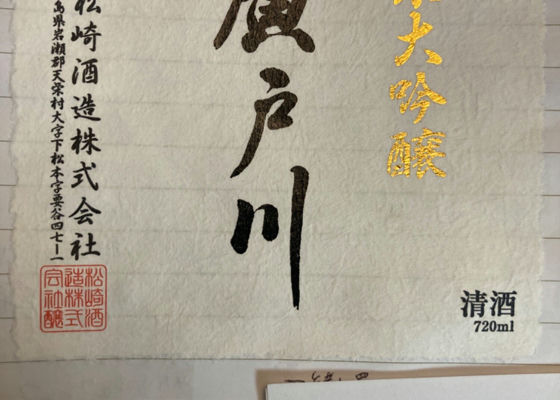 大吟醸
廣戸川
松崎酒造株式会社
島県岩瀬郡天栄村大字下松本字要谷四七ー一
松崎酒
造株式
会社醸
清酒
720ml